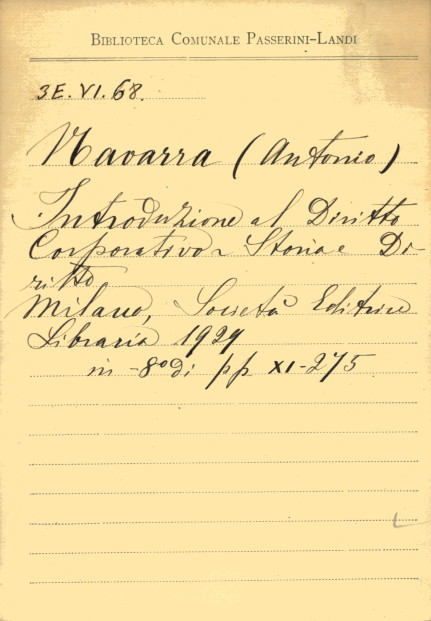 BIBLIOTECA COMUNALE PASSERINI-LANDI
3E. VI. 68.
Navarra (Antonio)
Introduzione al Diritto
Corporativo - Storia e Di-
ritto
Milano, Società Editrice
Libraria 1929
in -8º di pp XI-275